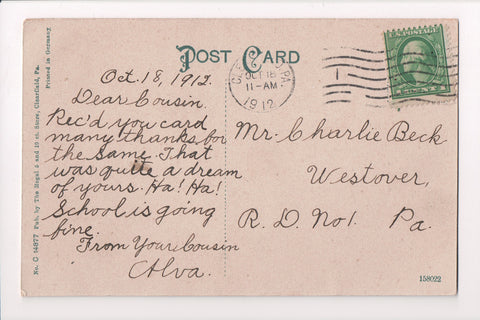 POST CARD
Oct. 18, 1912.
Dear Cousin.
Rec'd you card
many thanks for
the same. That
was quite a dream
of yours. Ha! Ha!
School is going
fine.
From Your Cousin
Alva.
OCT 18
11-AM
1912
PA.
Mr. Charlie Beck
Westover,
R. D. No1. Pa.
158022
No. C 14877 Pub. by The Regal 5 and 10 ct. Store, Clearfield, Pa.
Printed in Germany